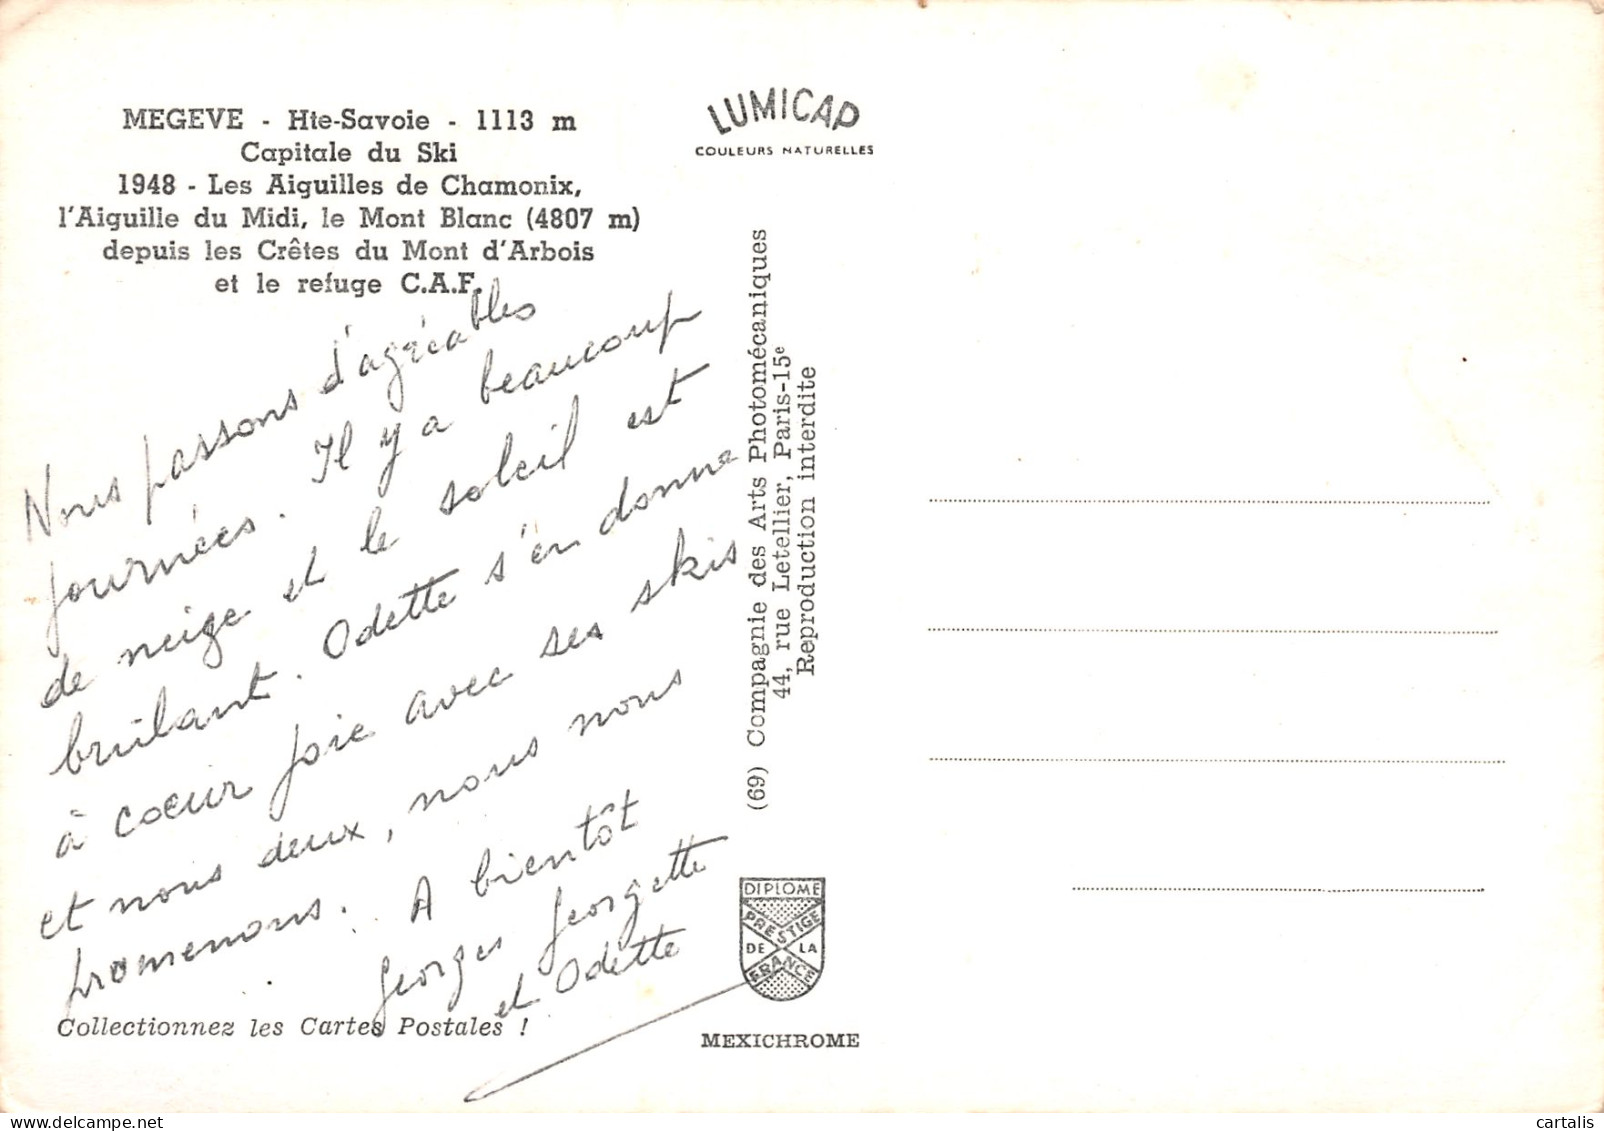 MEGEVE - Hte-Savoie - 1113 m
Capitale du Ski
1948 - Les Aiguilles de Chamonix,
l'Aiguille du Midi, le Mont Blanc (4807 m)
depuis les Crêtes du Mont d'Arbois
et le refuge C.A.F.
Nous passons d'agréables
journées. Il y a beaucoup
de neige et le soleil est
brûlant. Odette s'en donne
à coeur joie avec ses skis
et nous deux, nous nous
promenons. A bientôt
Georges Georgette
et Odette
Collectionnez les Cartes Postales !
LUMICAP
COULEURS NATURELLES
(69) Compagnie des Arts Photomécaniques
44, rue Letellier, Paris-15e
Reproduction interdite
DIPLOME
PRESTIGE
DE LA
FRANCE
MEXICHROME
cartalis